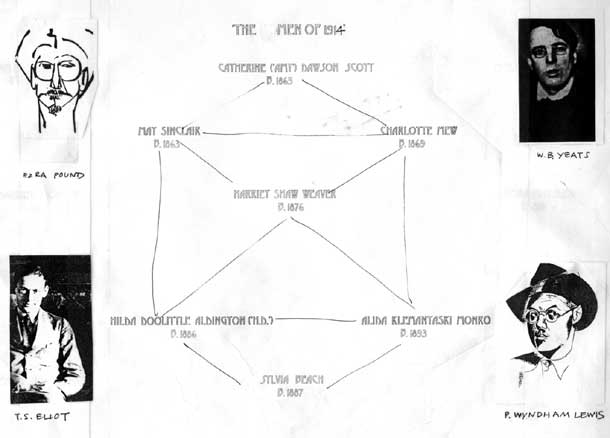 THE MEN OF 1914
CATHERINE (AMY) DAWSON SCOTT
B. 1865
MAY SINCLAIR
B. 1863
CHARLOTTE MEW
B. 1869
EZRA POUND
W.B. YEATS
HARRIET SHAW WEAVER
B. 1876
HILDA DOOLITTLE ALDINGTON (H.D.)
B. 1886
ALIDA KLEMANTASKI MONRO
B. 1893
SYLVIA BEACH
B. 1887
T.S. ELIOT
P. WYNDHAM LEWIS